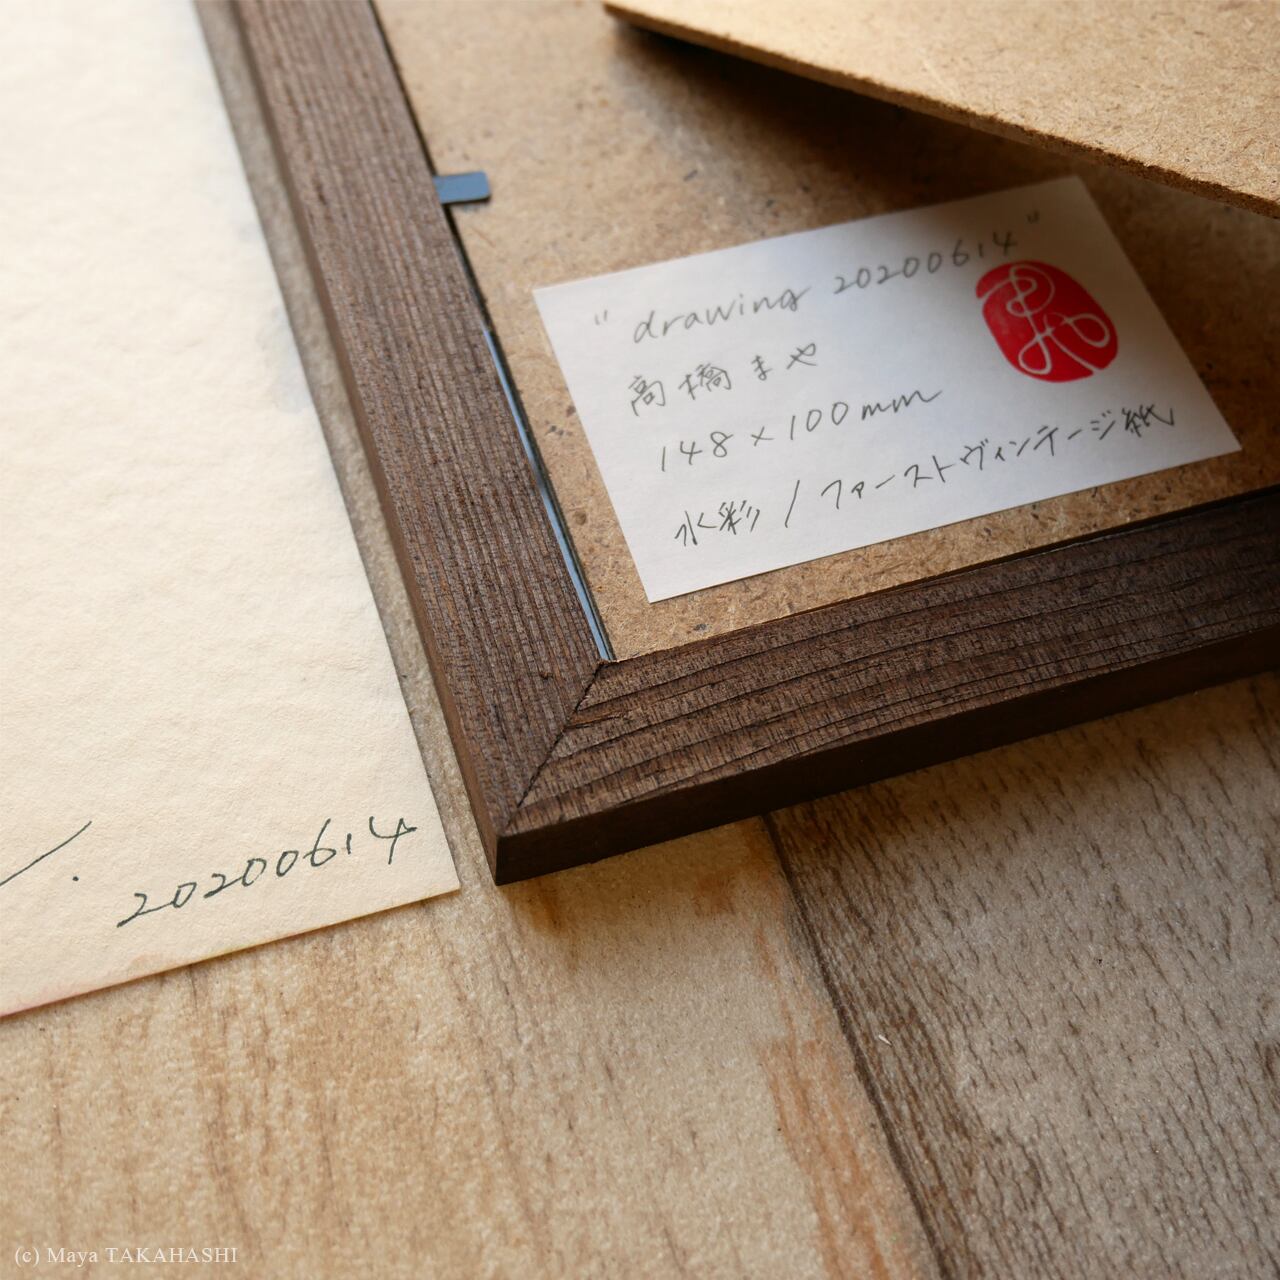 "drawing 20200614"
高橋まや
148×100mm
水彩/ファーストヴィンテージ紙
まや
20200614
(c) Maya TAKAHASHI